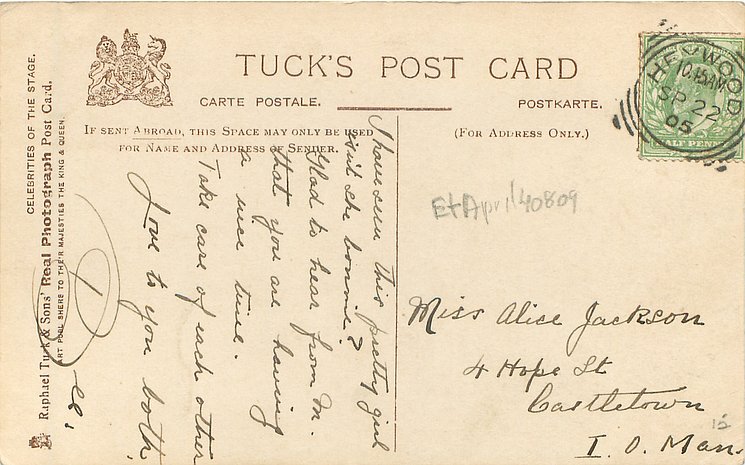 TUCK'S POST CARD
CARTE POSTALE.
POSTKARTE.
IF SENT ABROAD, THIS SPACE MAY ONLY BE USED
FOR NAME AND ADDRESS OF SENDER.
(FOR ADDRESS ONLY.)
HEYWOOD
10.15AM
SP 22
05
HALF PENNY
CELEBRITIES OF THE STAGE.
Raphael Tuck & Sons' Real Photograph Post Card.
ART PUBLISHERS TO THEIR MAJESTIES THE KING & QUEEN.
I have seen this pretty girl
isn't she bonnie?
Glad to hear from M.
that you are having
a nice time.
Take care of each other
Love to you both.
Et April 40809
Miss Alice Jackson
4 Hope St
Castletown
I. O. Man.
12